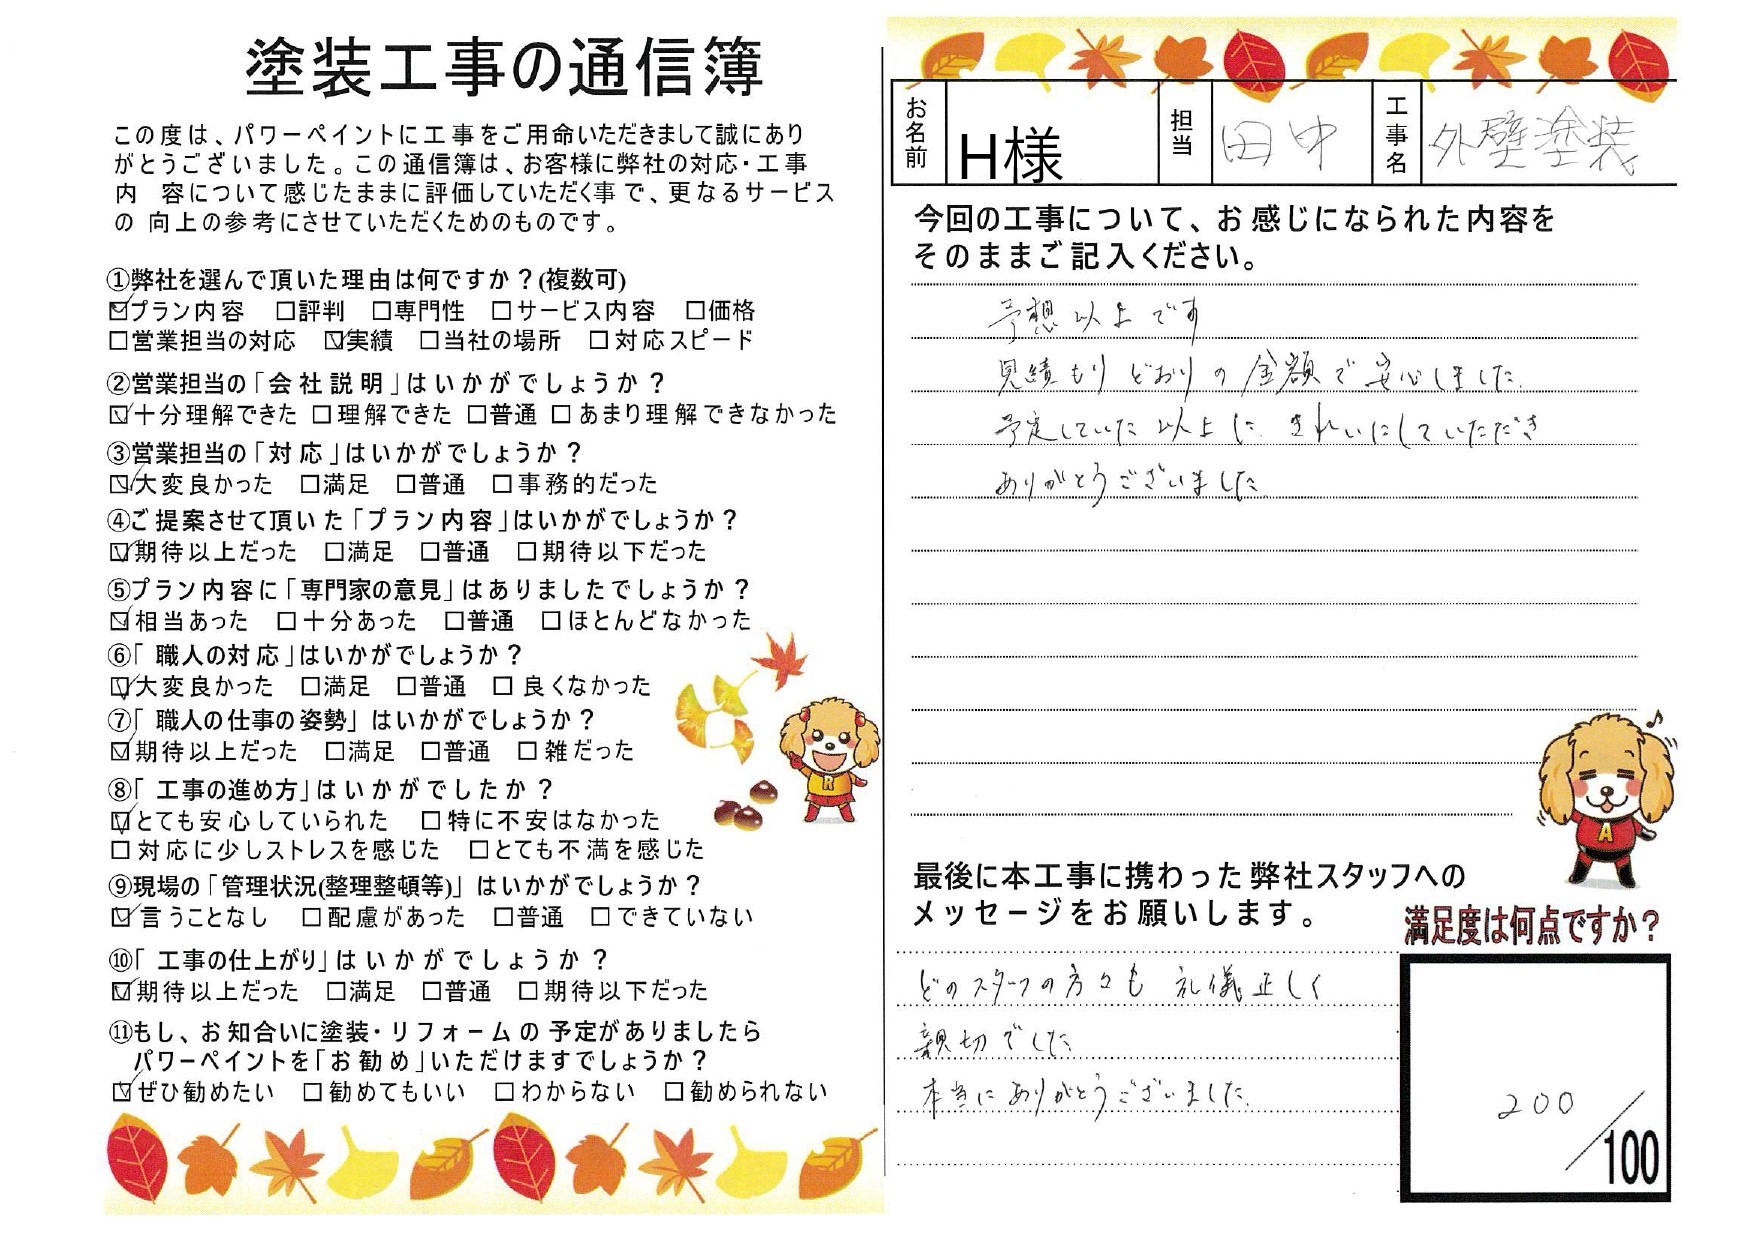 塗装工事の通信簿
この度は、パワーペイントに工事をご用命いただきまして誠にあり
がとうございました。この通信簿は、お客様に弊社の対応・工事
内 容について感じたままに評価していただく事で、更なるサービス
の 向上の参考にさせていただくためのものです。
①弊社を選んで頂いた理由は何ですか？(複数可)
☑プラン内容 □評判 □専門性 □サービス内容 □価格
□営業担当の対応 ☑実績 □当社の場所 □対応スピード
②営業担当の「会社説明」はいかがでしょうか？
☑十分理解できた □理解できた □普通 □あまり理解できなかった
③営業担当の「対応」はいかがでしょうか？
☑大変良かった □満足 □普通 □事務的だった
④ご提案させて頂いた「プラン内容」はいかがでしょうか？
☑期待以上だった □満足 □普通 □期待以下だった
⑤プラン内容に「専門家の意見」はありましたでしょうか？
☑相当あった □十分あった □普通 □ほとんどなかった
⑥「職人の対応」はいかがでしょうか？
☑大変良かった □満足 □普通 □良くなかった
⑦「職人の仕事の姿勢」はいかがでしょうか？
☑期待以上だった □満足 □普通 □雑だった
⑧「工事の進め方」はいかがでしたか？
☑とても安心していられた □特に不安はなかった
□対応に少しストレスを感じた □とても不満を感じた
⑨現場の「管理状況(整理整頓等)」はいかがでしょうか？
☑言うことなし □配慮があった □普通 □できていない
⑩「工事の仕上がり」はいかがでしょうか？
☑期待以上だった □満足 □普通 □期待以下だった
⑪もし、お知合いに塗装・リフォームの予定がありましたら
パワーペイントを「お勧め」いただけますでしょうか？
☑ぜひ勧めたい □勧めてもいい □わからない □勧められない
お名前 H様 担当 田中 工事名 外壁塗装
今回の工事について、お感じになられた内容を
そのままご記入ください。
予想以上です
見積もりどおりの金額で安心しました
予定していた以上に きれいにしていただき
ありがとうございました
最後に本工事に携わった弊社スタッフへの
メッセージをお願いします。
満足度は何点ですか？
どのスタッフの方々も 礼儀正しく
親切でした
本当にありがとうございました
200/100
R
A